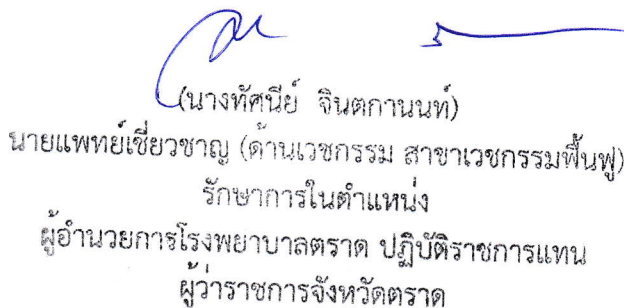 (นางทัศนีย์ จินตกานนท์)
นายแพทย์เชี่ยวชาญ (ด้านเวชกรรม สาขาเวชกรรมฟื้นฟู)
รักษาการในตำแหน่ง
ผู้อำนวยการโรงพยาบาลตราด ปฏิบัติราชการแทน
ผู้ว่าราชการจังหวัดตราด